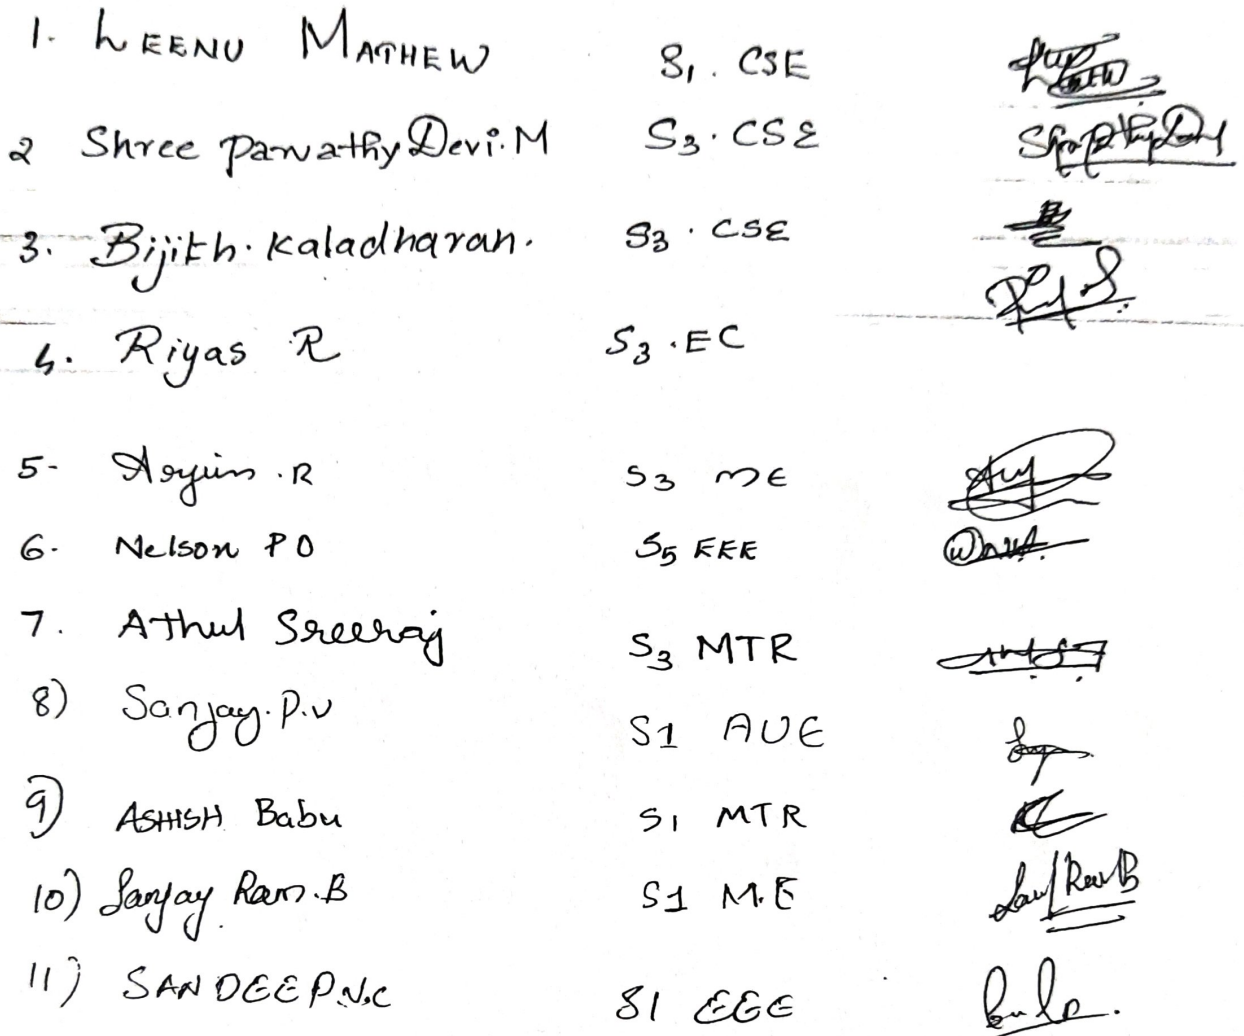 1. LEENU MATHEW S1. CSE
2 Shree parvathy Devi.M S3. CSE
3. Bijith. kaladharan. S3. CSE
4. Riyas R S3.EC
5- Arjun .R S3 ME
6. Nelson P O S5 EEE
7. Athul Sreeraj S3 MTR
8) Sanjay.P.V S1 AUE
9) ASHISH Babu S1 MTR
10) Sanjay Ram.B S1 M.E
11) SANDEEP.N.C S1 EEE